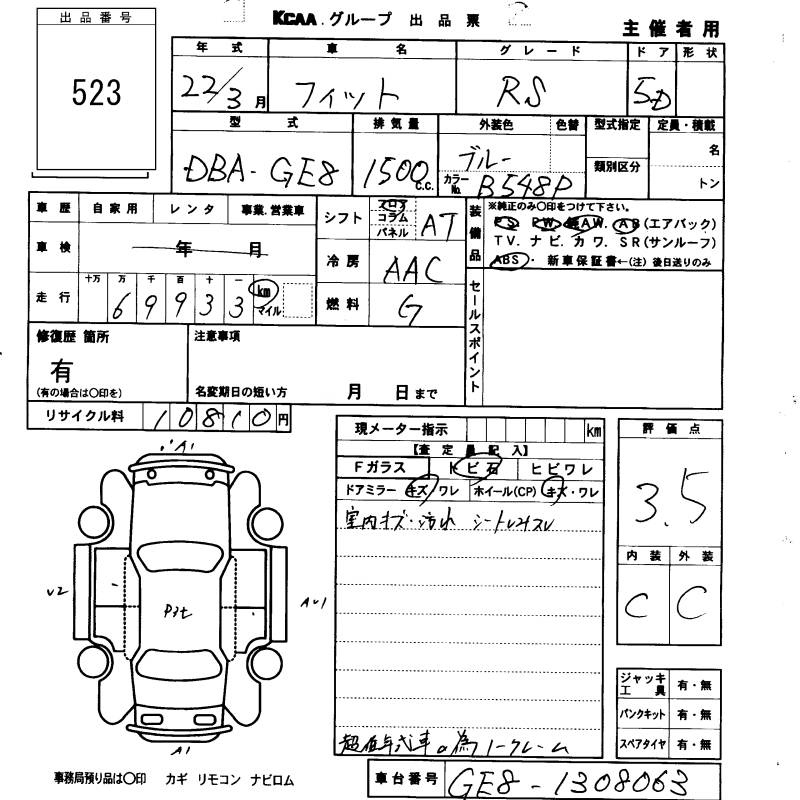 KCAA グループ 出品票
主催者用
出品番号
523
年式 車名 グレード ドア 形状
22/3月 フィット RS 5D
型式 排気量 外装色 色替 型式指定 定員・積載
DBA-GE8 1500 c.c. ブルー 類別区分 名
カラーNo. B548P トン
車歴 自家用 レンタ 事業.営業車
シフト フロア コラム パネル AT
装備品 ※純正のみ〇印をつけて下さい。
PS PW AW. AB(エアバック)
TV. ナビ. カワ. SR(サンルーフ)
ABS・ 新車保証書←(注) 後日送りのみ
車検 年 月
冷房 AAC
走行 十万 万 千 百 十 一 km マイル
69933
燃料 G
セールスポイント
修復歴 箇所
有
(有の場合は〇印を)
注意事項
名変期日の短い方 月 日まで
リサイクル料 10810円
現メーター指示 km
【査定員記入】
Fガラス トビ石 ヒビワレ
ドアミラー キズ ワレ ホイール(CP) キズ・ワレ
室内キズ・汚れ シートレススレ
超低年式車の為ノークレーム
評価点
3.5
内装 外装
C C
A1
V2
Pit
AV1
A1
ジャッキ工具 有・無
パンクキット 有・無
スペアタイヤ 有・無
事務局預り品は〇印 カギ リモコン ナビロム
車台番号 GE8-1308063